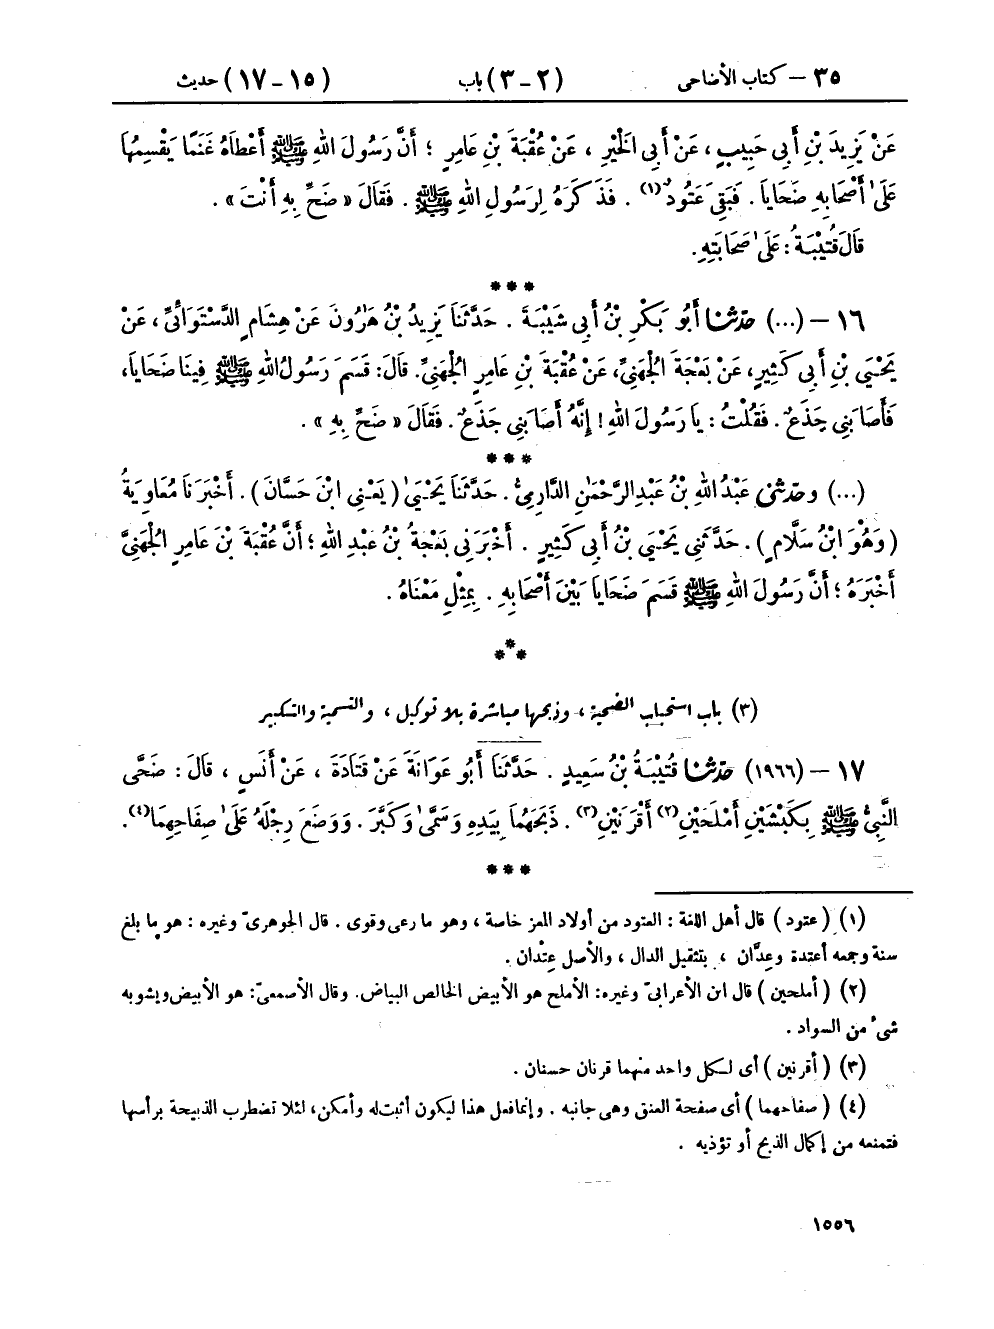 ٣٥ – كتاب الأضاحى (٢ - ٣) باب (١٥ - ١٧) حديث
عَنْ يَزِيدَ بْنِ أَبِى حَبِيبٍ، عَنْ أَبِى الْخَيْرِ، عَنْ عُقْبَةَ بْنِ عَامِرٍ ؛ أَنَّ رَسُولَ اللهِ ﷺ أَعْطَاهُ غَنَمًا يَقْسِمُهَا
عَلَىٰ أَصْحَابِهِ ضَحَايَا . فَبَقِىَ عَتُودٌ (١) . فَذَكَرَهُ لِرَسُولِ اللهِ ﷺ . فَقَالَ « ضَحِّ بِهِ أَنْتَ » .
قَالَ قُتَيْبَةُ : عَلَىٰ صَحَابَتِهِ .
***
١٦ – (...) حَدَّثَنَا أَبُو بَكْرِ بْنُ أَبِى شَيْبَةَ . حَدَّثَنَا يَزِيدُ بْنُ هَارُونَ عَنْ هِشَامٍ الدَّسْتَوَائِىِّ ، عَنْ
يَحْيَىٰ بْنِ أَبِى كَثِيرٍ، عَنْ بَعْجَةَ الْجُهَنِىِّ، عَنْ عُقْبَةَ بْنِ عَامِرٍ الْجُهَنِىِّ. قَالَ: قَسَمَ رَسُولُ اللهِ ﷺ فِينَا ضَحَايَا،
فَأَصَابَنِى جَذَعٌ . فَقُلْتُ : يَا رَسُولَ اللهِ ! إِنَّهُ أَصَابَنِى جَذَعٌ . فَقَالَ « ضَحِّ بِهِ » .
***
(...) وحَدَّثَنِى عَبْدُ اللهِ بْنُ عَبْدِ الرَّحْمَٰنِ الدَّارِمِىُّ . حَدَّثَنَا يَحْيَىٰ ( يَعْنِى ابْنَ حَسَّانَ ) . أَخْبَرَنَا مُعَاوِيَةُ
( وَهُوَ ابْنُ سَلَّامٍ ) . حَدَّثَنِى يَحْيَىٰ بْنُ أَبِى كَثِيرٍ . أَخْبَرَنِى بَعْجَةُ بْنُ عَبْدِ اللهِ ؛ أَنَّ عُقْبَةَ بْنَ عَامِرٍ الْجُهَنِىَّ
أَخْبَرَهُ ؛ أَنَّ رَسُولَ اللهِ ﷺ قَسَمَ ضَحَايَا بَيْنَ أَصْحَابِهِ . بِمِثْلِ مَعْنَاهُ .
***
(٣) باب استحباب الضحية ، وذبحها مباشرة بلا توكيل ، والتسمية والتكبير
١٧ – (١٩٦٦) حَدَّثَنَا قُتَيْبَةُ بْنُ سَعِيدٍ . حَدَّثَنَا أَبُو عَوَانَةَ عَنْ قَتَادَةَ ، عَنْ أَنَسٍ ، قَالَ : ضَحَّى
النَّبِىُّ ﷺ بِكَبْشَيْنِ أَمْلَحَيْنِ (٢) أَقْرَنَيْنِ (٣) . ذَبَحَهُمَا بِيَدِهِ وَسَمَّىٰ وَكَبَّرَ . وَوَضَعَ رِجْلَهُ عَلَىٰ صِفَاحِهِمَا (٤) .
***
(١) ( عتود ) قال أهل اللغة : العتود من أولاد المعز خاصة ، وهو ما رعى وقوى . قال الجوهرىّ وغيره : هو ما بلغ
سنة وجمعه أعتدة وعِدَّان ، بتثقيل الدال ، والأصل عِتْدان .
(٢) ( أملحين ) قال ابن الأعرابىّ وغيره: الأملح هو الأبيض الخالص البياض. وقال الأصمعىّ: هو الأبيض ويشوبه
شىء من السواد .
(٣) ( أقرنين ) أى لكل واحد منهما قرنان حسنان .
(٤) ( صفاحهما ) أى صفحة العنق وهى جانبه . وإنما فعل هذا ليكون أثبت له وأمكن، لئلا تضطرب الذبيحة برأسها
فتمنعه من إكمال الذبح أو تؤذيه .
١٥٥٦